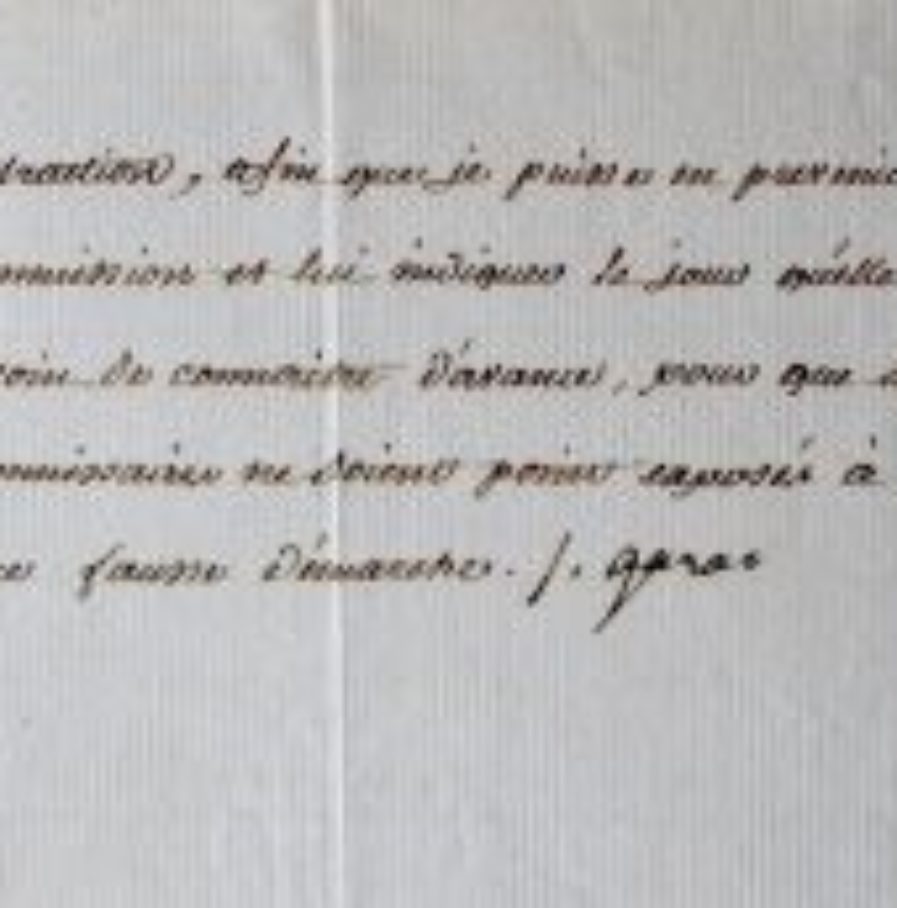 traction, afin que je puisse en prevenir
mmission et lui indiquer le jour qu'elle
soin de connoitre d'avance, pour que
ommissaires ne soient point exposés à
fausse démarche. /.